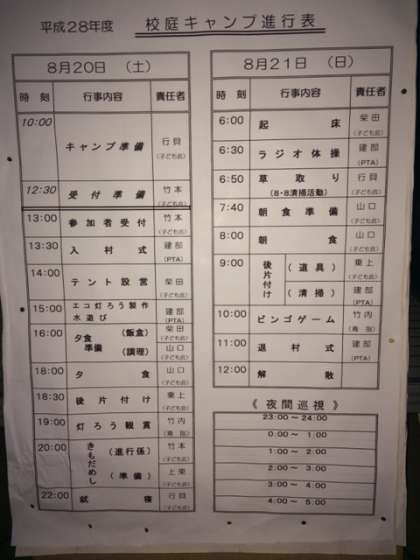 平成28年度 校庭キャンプ進行表
8月20日 (土)
時刻 行事内容 責任者
10:00 キャンプ準備 行貝 (子ども会)
12:30 受付準備 竹本 (子ども会)
13:00 参加者受付 竹本 (子ども会)
13:30 入村式 建部 (PTA)
14:00 テント設営 柴田 (子ども会)
15:00 エコ灯ろう製作 水遊び 建部 (PTA)
16:00 夕食準備 (飯盒) 柴田 (子ども会)
(調理) 山口 (子ども会)
18:00 夕食 山口 (子ども会)
18:30 後片付け 東上 (子ども会)
19:00 灯ろう観賞 竹内
20:00 きもだめし (進行係) 竹本 (子ども会)
(準備) 上東 (子ども会)
22:00 就寝 行貝 (子ども会)
8月21日 (日)
時刻 行事内容 責任者
6:00 起床 柴田 (子ども会)
6:30 ラジオ体操 建部 (PTA)
6:50 草取り 行貝 (子ども会)
(8・8清掃活動)
7:40 朝食準備 山口 (子ども会)
8:00 朝食 山口 (子ども会)
9:00 後片付け (道具) 東上 (子ども会)
(清掃) 建部 (PTA)
10:00 ビンゴゲーム 竹内
11:00 退村式 建部 (PTA)
12:00 解散
《夜間巡視》
23:00～24:00
0:00～1:00
1:00～2:00
2:00～3:00
3:00～4:00
4:00～5:00